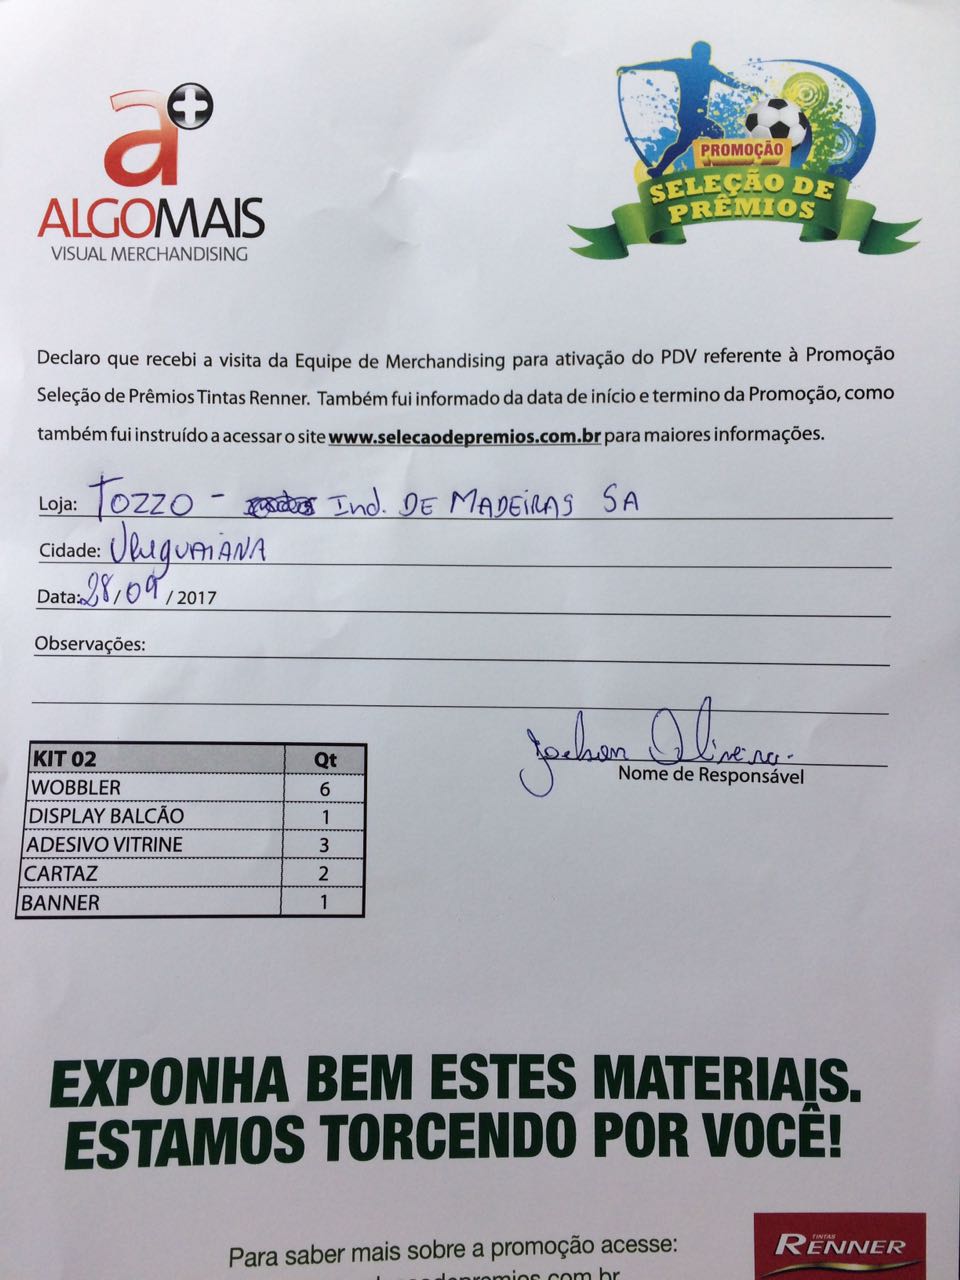 a+
ALGOMAIS
VISUAL MERCHANDISING
PROMOÇÃO
SELEÇÃO DE
PRÊMIOS
Declaro que recebi a visita da Equipe de Merchandising para ativação do PDV referente à Promoção
Seleção de Prêmios Tintas Renner. Também fui informado da data de início e termino da Promoção, como
também fui instruído a acessar o site www.selecaodepremios.com.br para maiores informações.
Loja: TOZZO - Ind. DE MADEIRAS SA
Cidade: URUGUAIANA
Data: 28/09/2017
Observações:
Joelson Oliveira.
Nome de Responsável
KIT 02 Qt
WOBBLER 6
DISPLAY BALCÃO 1
ADESIVO VITRINE 3
CARTAZ 2
BANNER 1
EXPONHA BEM ESTES MATERIAIS.
ESTAMOS TORCENDO POR VOCÊ!
Para saber mais sobre a promoção acesse:
TINTAS
RENNER